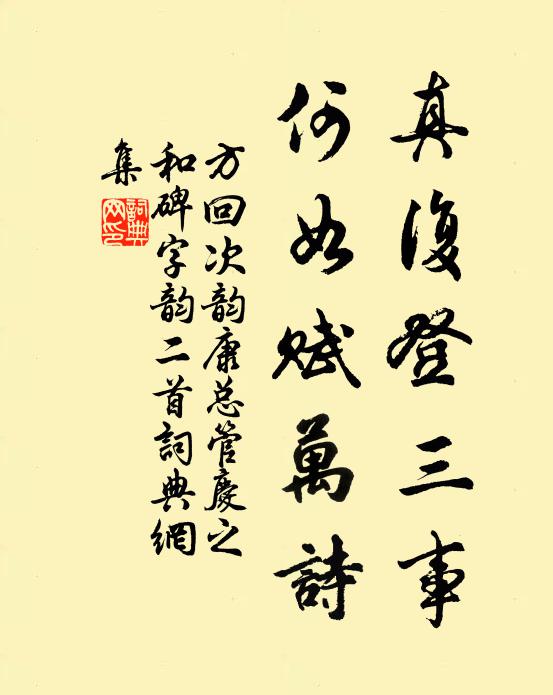 真復登三事
何如赋萬詩
方回次韵康总管慶之
和碑字韵二首詞典網
集
詞典
网印